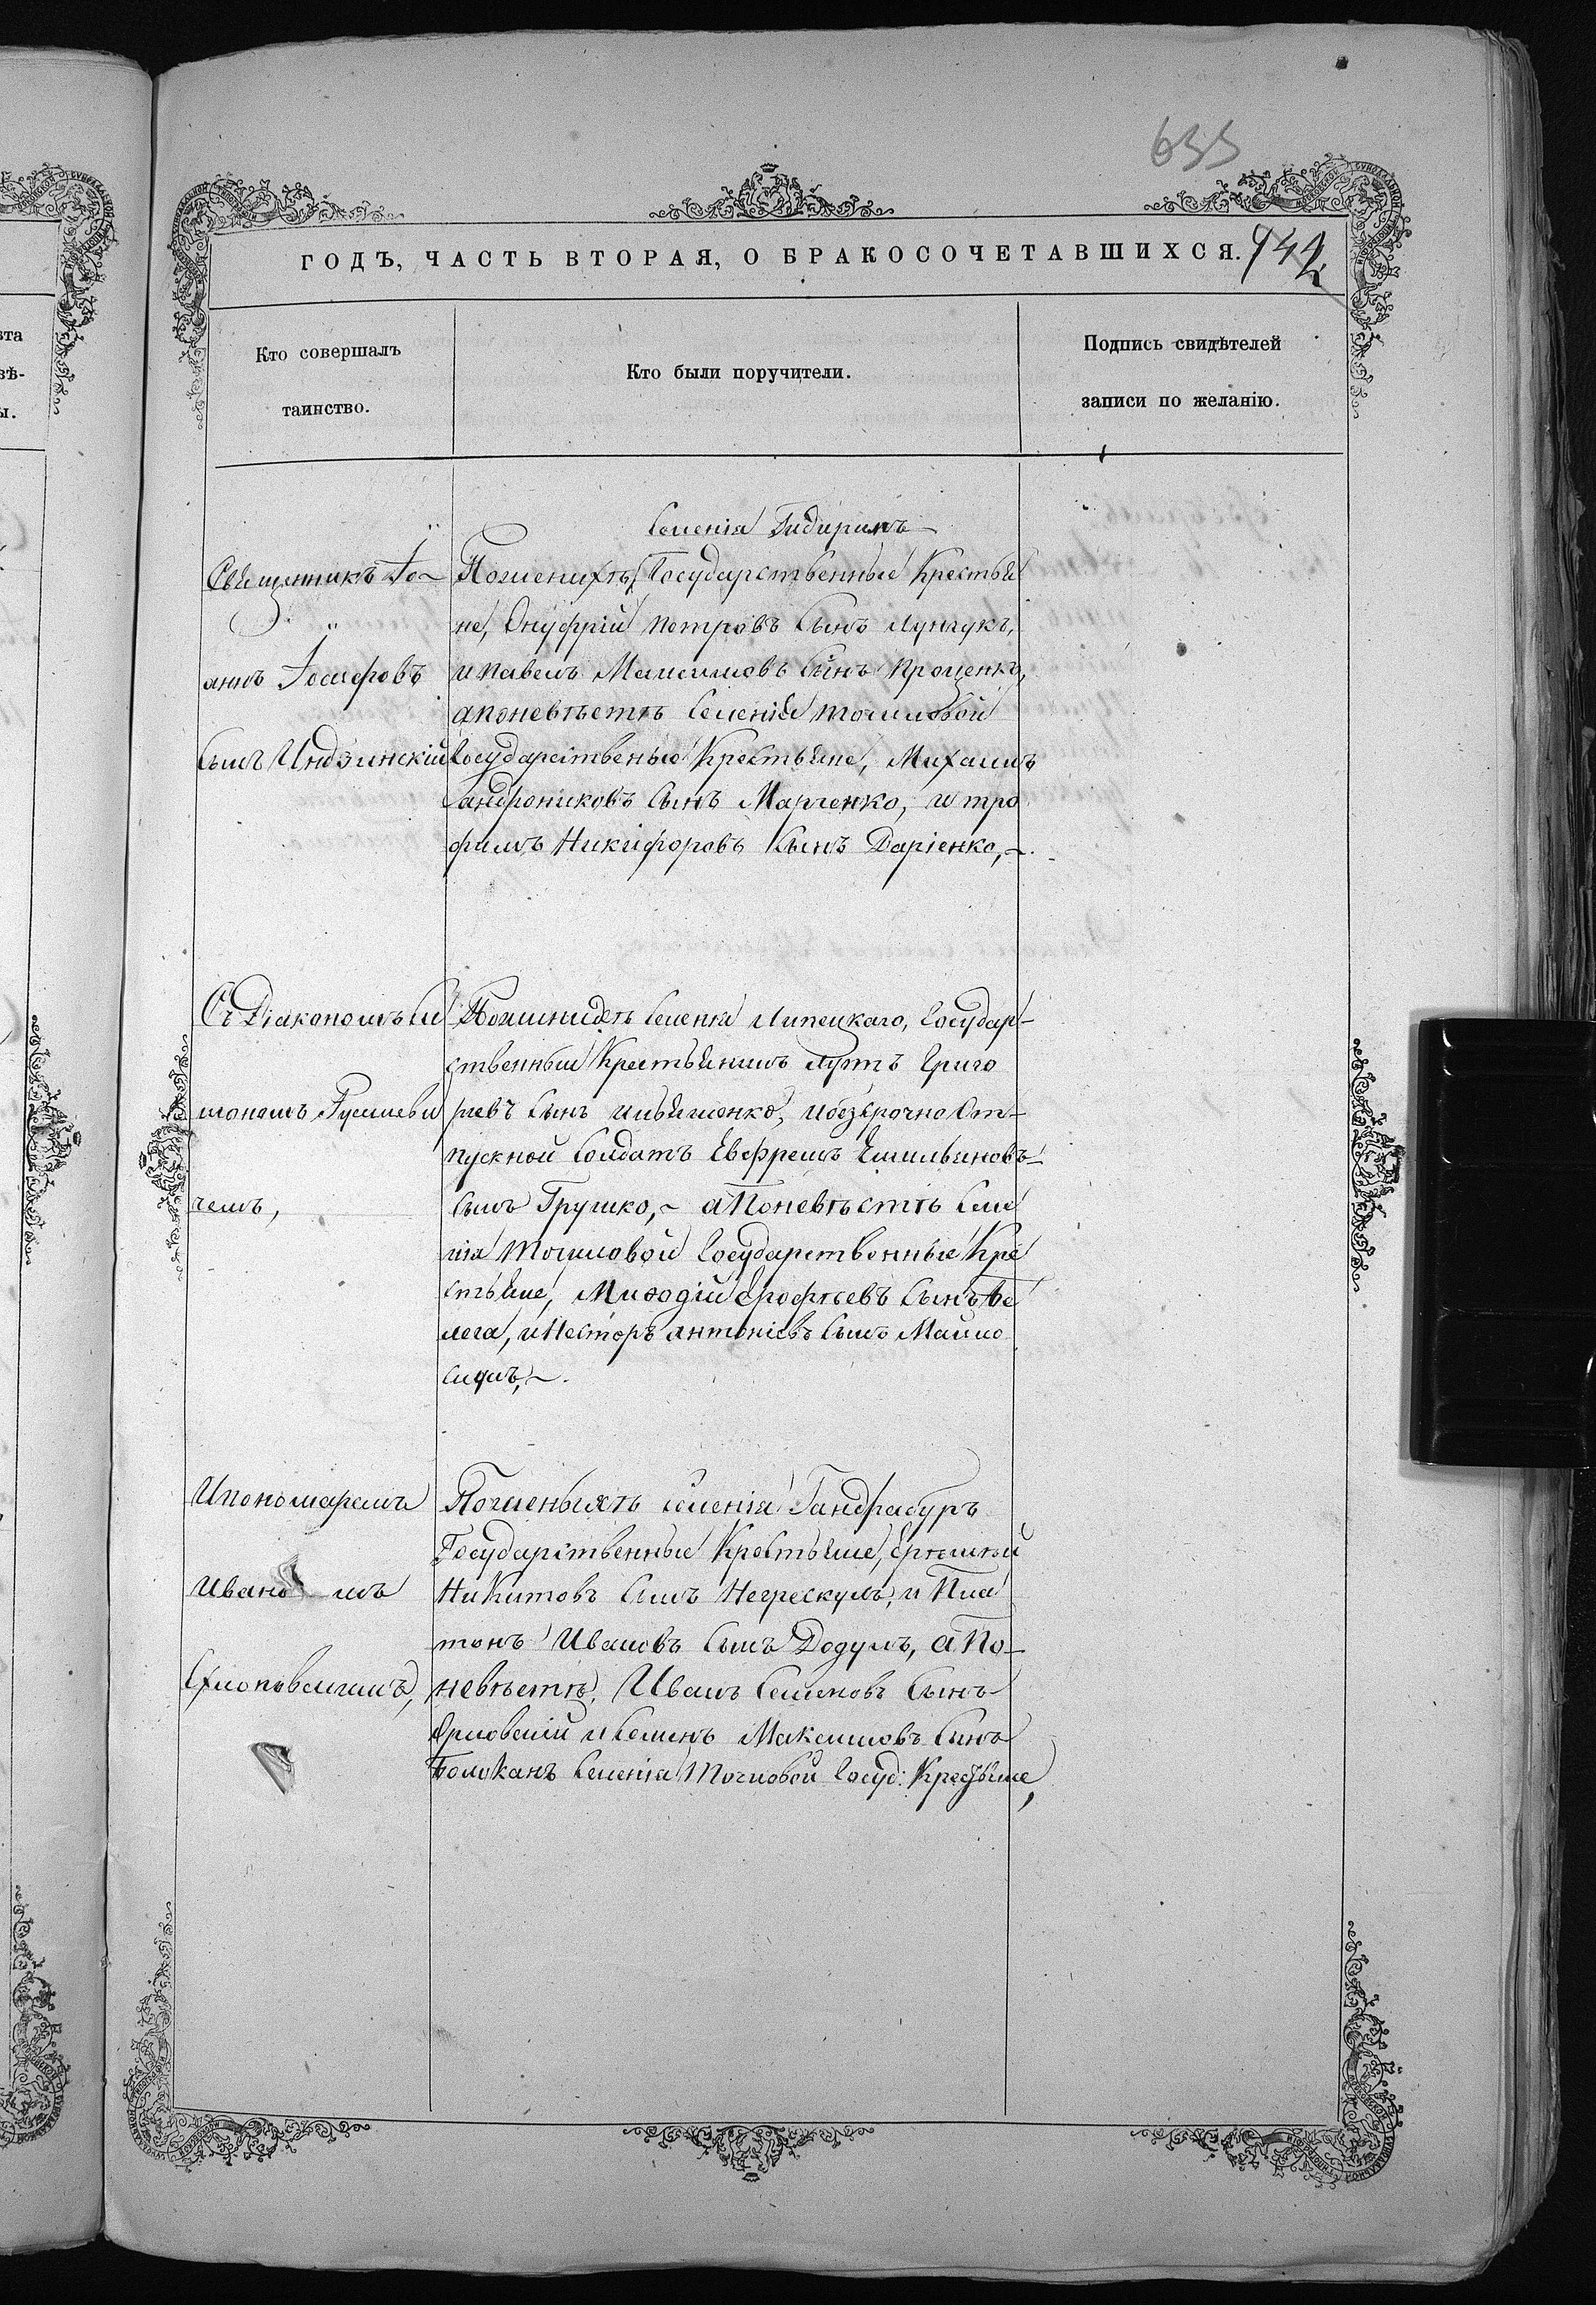 655
ГОДЪ, ЧАСТЬ ВТОРАЯ, О БРАКОСОЧЕТАВШИХСЯ. 942
Кто совершалъ
таинство.
Кто были поручители.
Подпись свидѣтелей
записи по желанію.
Священникъ Іо-
аннъ Іосифовъ
Сынъ Индзинскій
Селенія Гидиримъ
Пожених Государственные Крестья
не, Онуфрій Петровъ Сынъ Лунгукъ,
и Павелъ Максимовъ Сынъ Проценко,
а поневѣстѣ Селенія Точиловой
Государственые Крестьяне, Михаилъ
Андрониковъ Сынъ Марченко, и Тро
фимъ Никифоровъ Сынъ Даріенко,
Съ Діакономъ Си
мономъ
чемъ,
Селенія Липецкаго, Государ-
ственный Крестьянинъ Григо
рьевъ Сынъ Ильяшенко, и безсрочно От-
пускной Солдатъ Евфремъ Емильяновъ
Сынъ Грушко, а Поневѣстѣ Селе
нія Точиловой Государственные Кре
стьяне, Мифодій Ерофѣевъ Сынъ Бе
лега, и Несторъ Антоніевъ Сынъ
И пономаремъ
Ивано мъ
Пожених селенія Гандрабуръ
Государственные Крестьяне,
Никитовъ Сынъ Негрескулъ, и Пла
тонъ Ивановъ Сынъ Додулъ, а По-
невѣстѣ, Иванъ Семеновъ Сынъ
Орловскій и Семенъ Максимовъ Сынъ
Болоканъ Селенія Точиловой Госуд: Крестьяне,